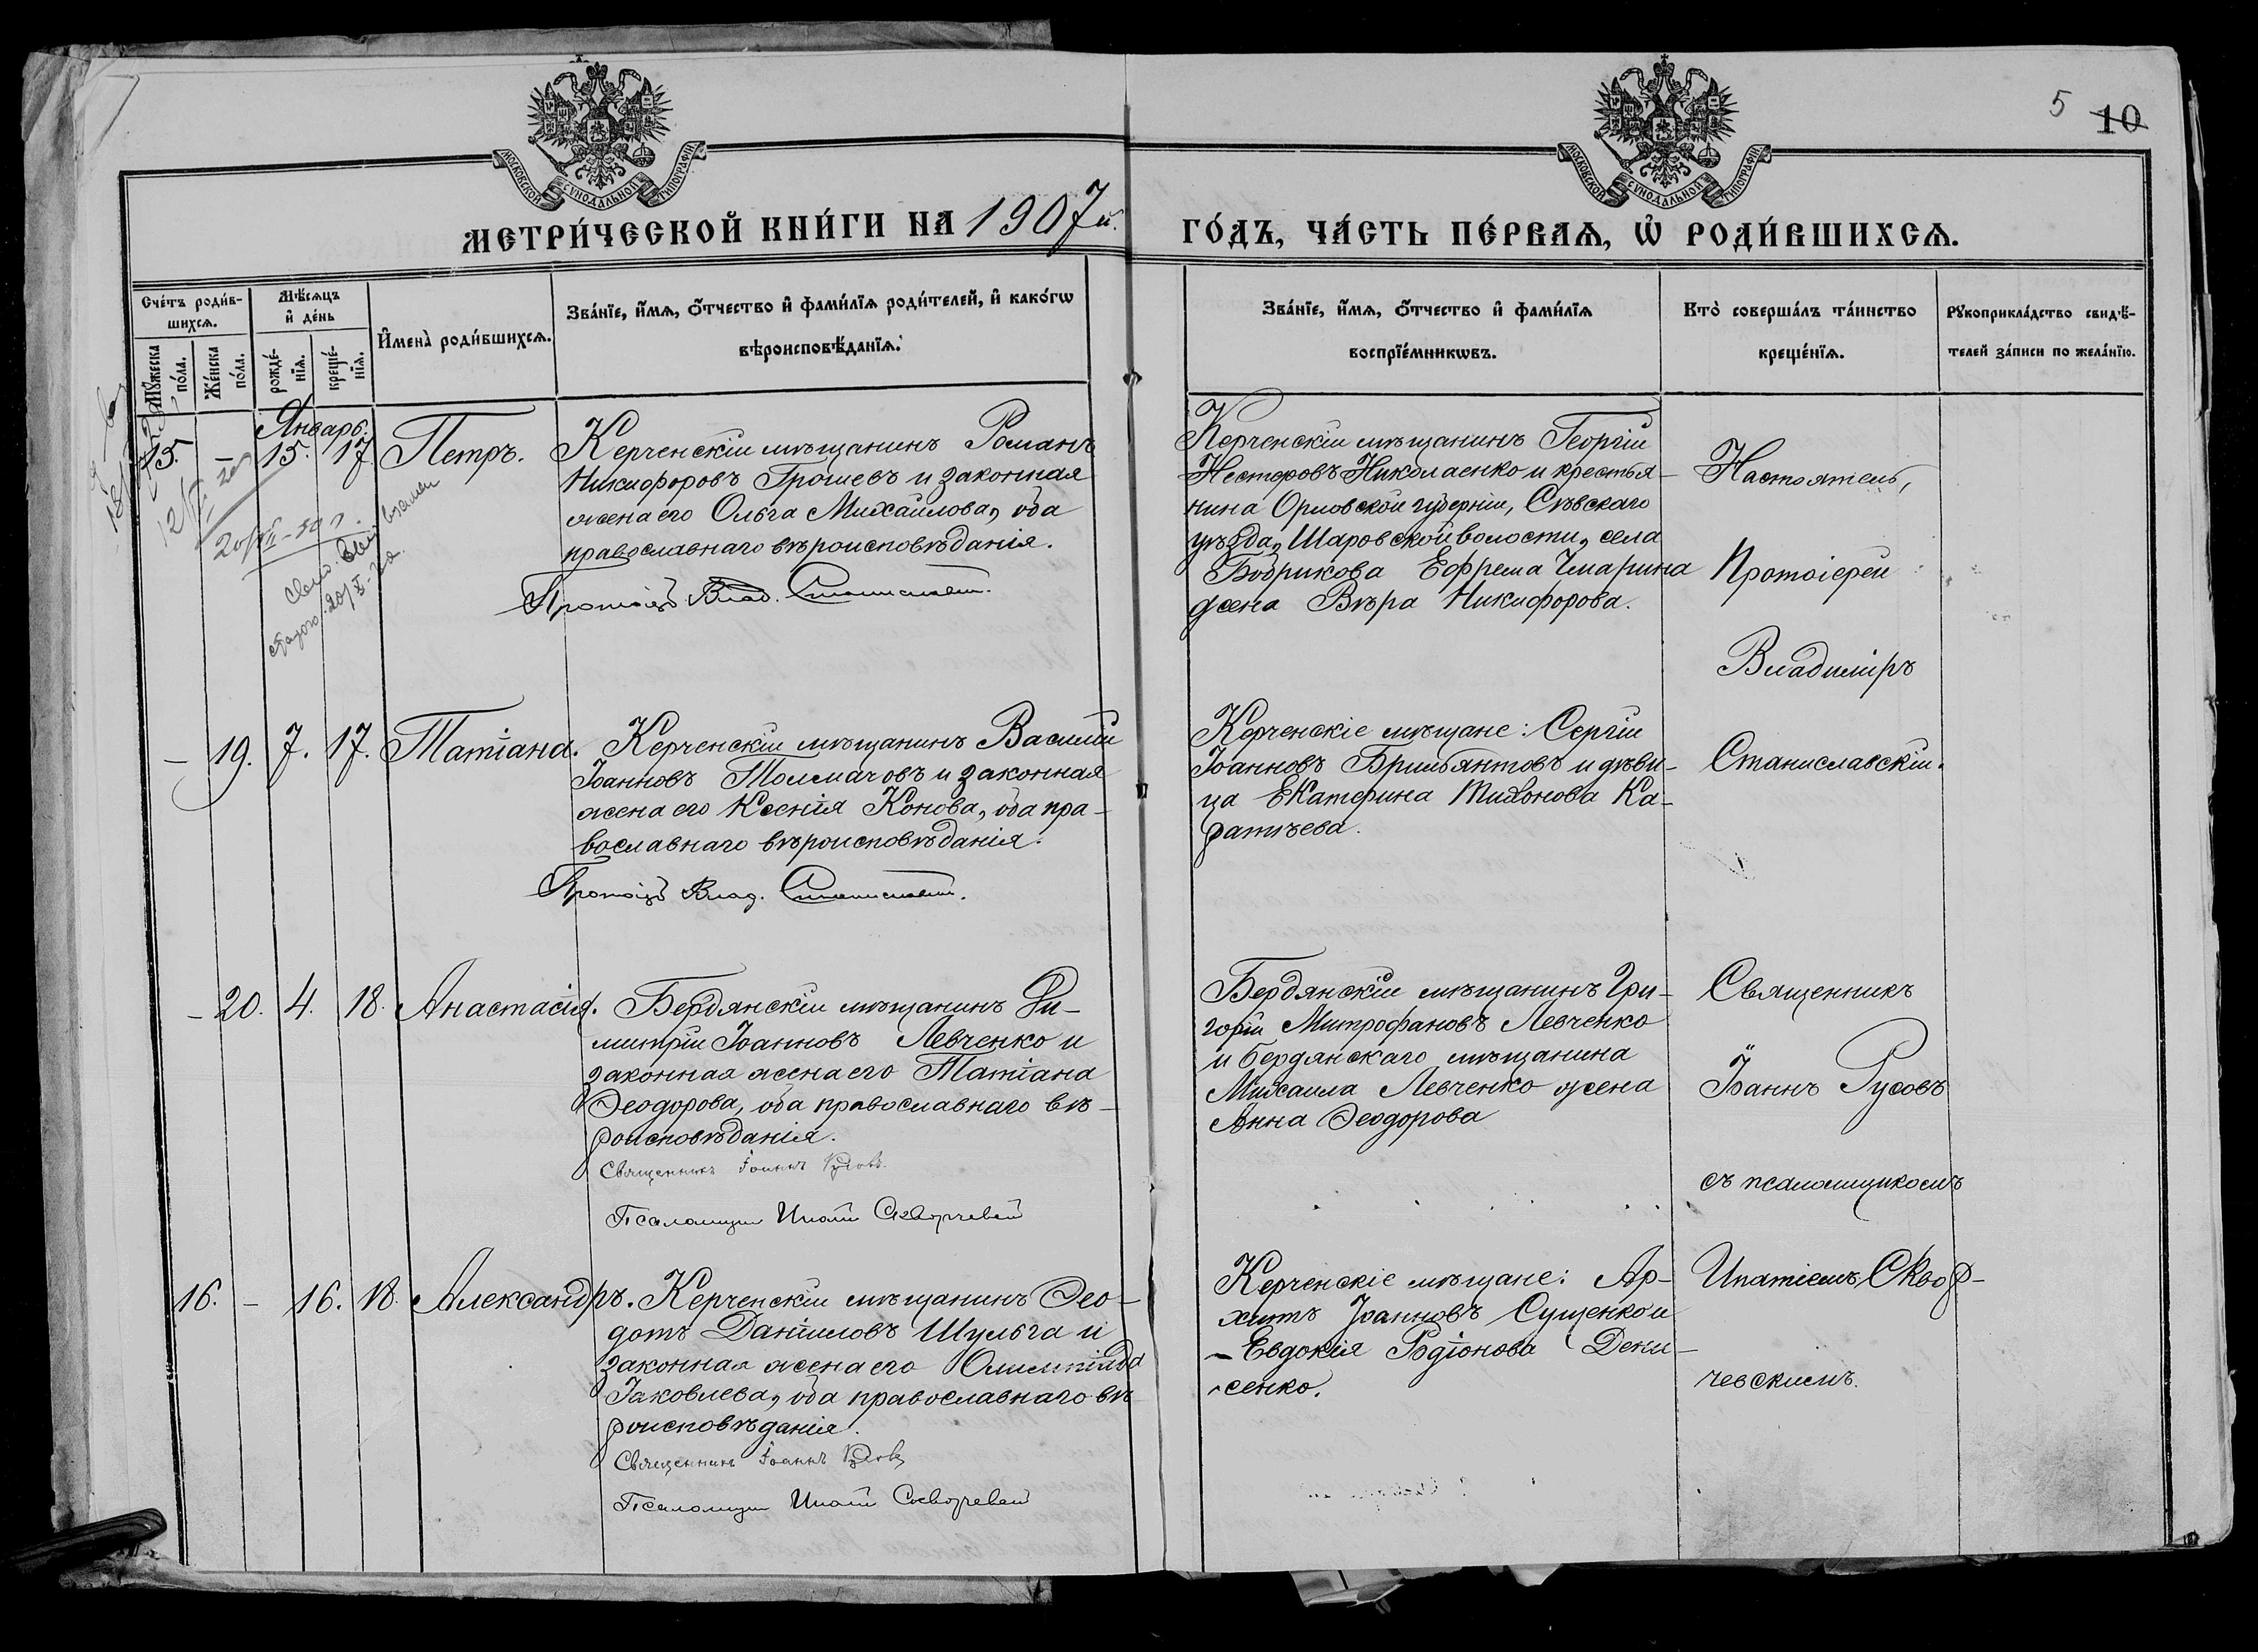 5 10
МОСКОВСКОЙ СѴНОДАЛЬНОЙ ТИПОГРАФІИ
МОСКОВСКОЙ СѴНОДАЛЬНОЙ ТИПОГРАФІИ
МЕТРИ́ЧЕСКОЙ КНИ́ГИ НА 1907й.
ГО́ДЪ, ЧА́СТЬ ПЕ́РВАѦ, Ѡ҆ РОДИ́ВШИХСѦ.
Сче́тъ роди́в-
шихсѧ.
Мꙋ́жеска по́ла.
Же́нска по́ла.
Мѣ́сѧцъ
и҆ де́нь
рожде́-
нїѧ.
креще́-
нїѧ.
И҆мена̀ роди́вшихсѧ.
Зва́нїе, и҆́мѧ, ѻ҆́тчество и҆ фами́лїѧ роди́телей, и҆ како́гѡ
вѣроисповѣ́данїѧ.
Зва́нїе, и҆́мѧ, ѻ҆́тчество и҆ фами́лїѧ
воспрїе́мникѡвъ.
Кто̀ соверша́лъ та́инство
креще́нїѧ.
Рꙋкоприкла́дство свидѣ́-
телей за́писи по жела́нїю.
Январь.
15. – 15. 17. Петръ.
Керченскій мѣщанинъ Романъ
Никифоровъ Грошевъ и законная
жена его Ольга Михайлова, оба
православнаго вѣроисповѣданія.
Протоіер Влад. Станиславск.
Керченскій мѣщанинъ Георгій
Несторовъ Николаенко и крестья-
нина Орловской губерніи, Сѣвскаго
уѣзда, Шаровской волости, села
Бобрикова Ефрема Чмарина
жена Вѣра Никифорова.
Настоятель,
Протоіерей
Владиміръ
Станиславскій.
– 19. 7. 17. Татіана.
Керченскій мѣщанинъ Василій
Іоанновъ Толмачовъ и законная
жена его Ксенія Конова, оба пра-
вославнаго вѣроисповѣданія.
Протоіер Влад. Станиславск.
Керченскіе мѣщане: Сергій
Іоанновъ Брильянтовъ и дѣви-
ца Екатерина Тихонова Ка-
ратѣева.
– 20. 4. 18. Анастасія.
Бердянскій мѣщанинъ Ди-
митрій Іоанновъ Левченко и
законная жена его Татіана
Ѳеодорова, оба православнаго вѣ-
роисповѣданія.
Священникъ Іоаннъ Русовъ.
Псаломщик Ипатій Скворчевскій
Бердянскій мѣщанинъ Гри-
горій Митрофановъ Левченко
и бердянскаго мѣщанина
Михаила Левченко жена
Анна Ѳеодорова
Священникъ
Іоаннъ Русовъ
съ псаломщикомъ
Ипатіемъ Сквор-
чевскимъ.
16. – 16. 18. Александръ.
Керченскій мѣщанинъ Ѳео-
дотъ Даніиловъ Шульга и
законная жена его Олимпіада
Іаковлева, оба православнаго вѣ
роисповѣданія.
Священникъ Іоаннъ Русовъ
Псаломщик Ипатій Скворчевскій
Керченскіе мѣщане: Ар-
хипъ Іоанновъ Сущенко и
Евдокія Родіонова Дени-
сенко.